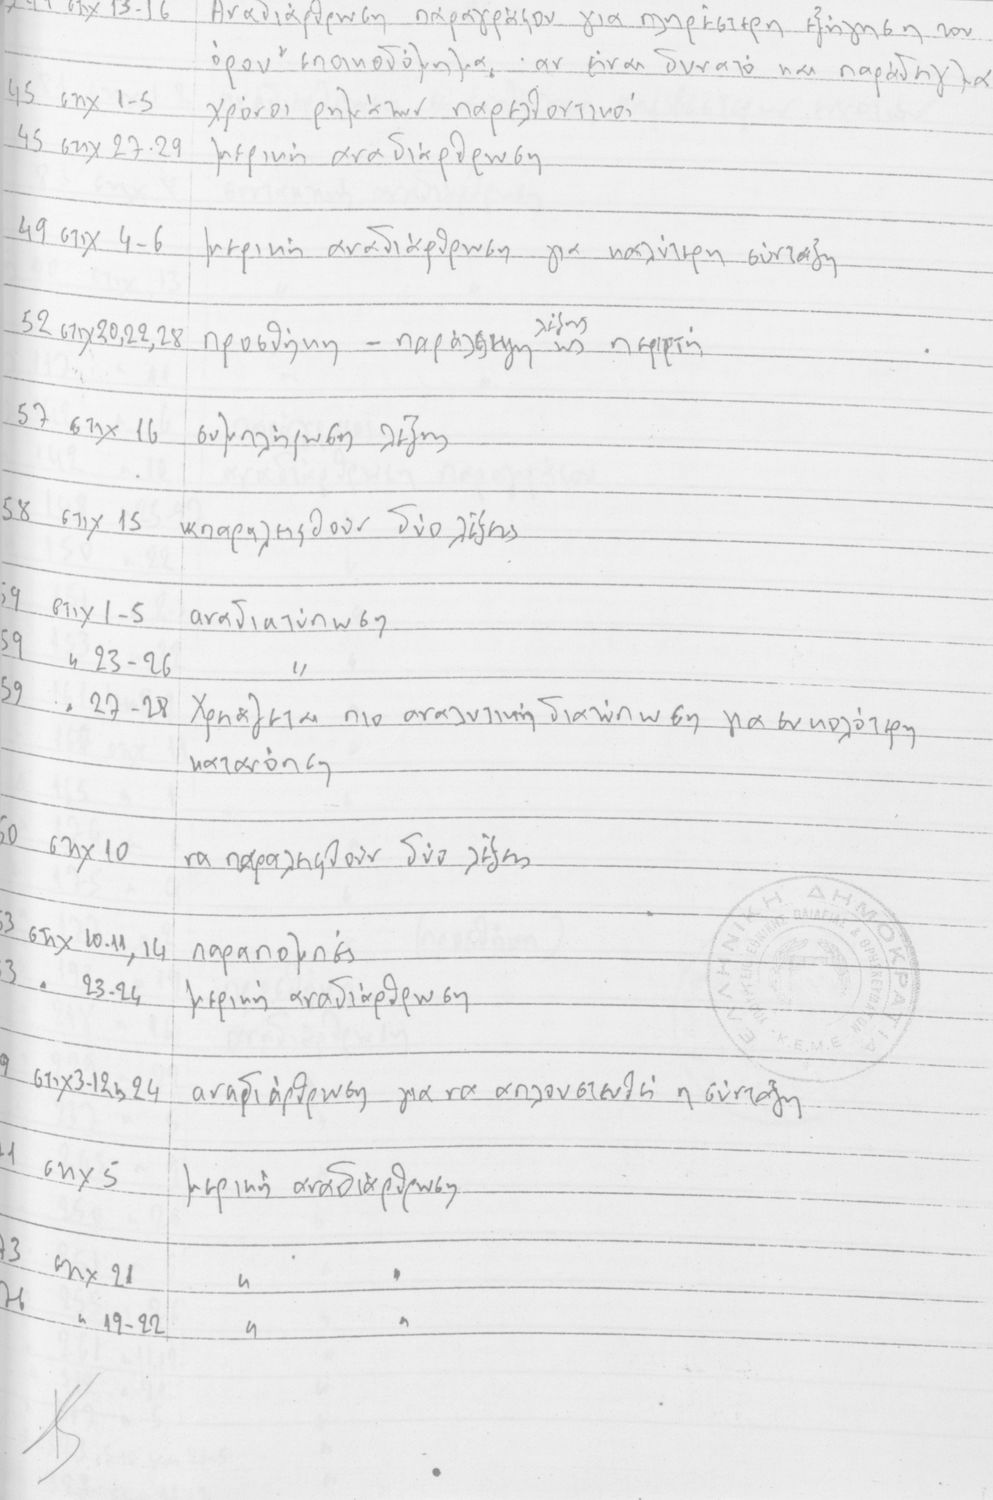 στιχ 13-16 Αναδιάρθρωση παραγράφου για πληρέστερη εξήγηση του
όρου "εποικοδόμημα". αν είναι δυνατό και παράδειγμα
45 στιχ 1-5 χρόνοι ρημάτων παρελθοντικοί
45 στιχ 27-29 μερική αναδιάρθρωση
49 στιχ 4-6 μερική αναδιάρθρωση για καλύτερη σύνταξη
52 στιχ 20, 22, 28 προσθήκη - παράλειψη λέξης ως περιττή
57 στιχ 16 συμπλήρωση λέξης
58 στιχ 15 παραλειφθούν δύο λέξεις
59 στιχ 1-5 αναδιατύπωση
59 " 23-26 "
59 " 27-28 Χρειάζεται πιο αναλυτική διατύπωση για ευκολότερη
κατανόηση
60 στιχ 10 να παραλειφθούν δύο λέξεις
63 στιχ 10-11, 14 παραπομπές
63 " 23-24 μερική αναδιάρθρωση
9 στιχ 3-12, 24 αναδιάρθρωση για να απλουστευθεί η σύνταξη
στιχ 5 μερική αναδιάρθρωση
73 στιχ 21 " "
76 " 19-22 " "
ΕΛΛΗΝΙΚΗ ΔΗΜΟΚΡΑΤΙΑ
ΥΠΟΥΡΓΕΙΟ ΕΘΝΙΚΗΣ ΠΑΙΔΕΙΑΣ & ΘΡΗΣΚΕΥΜΑΤΩΝ
Κ.Ε.Μ.Ε